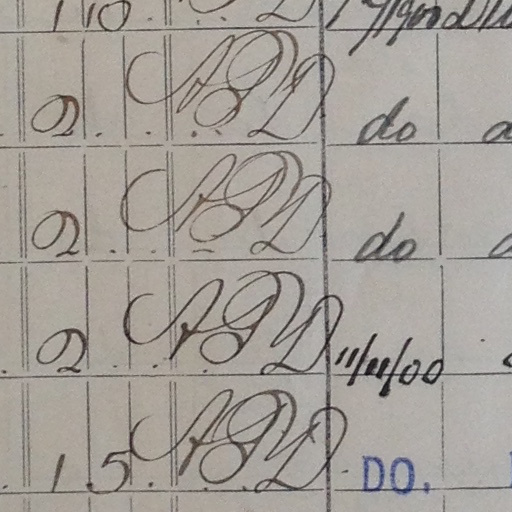 110.
2. APD do
2. APD do
2. APD 11/11/00
15. APD DO.